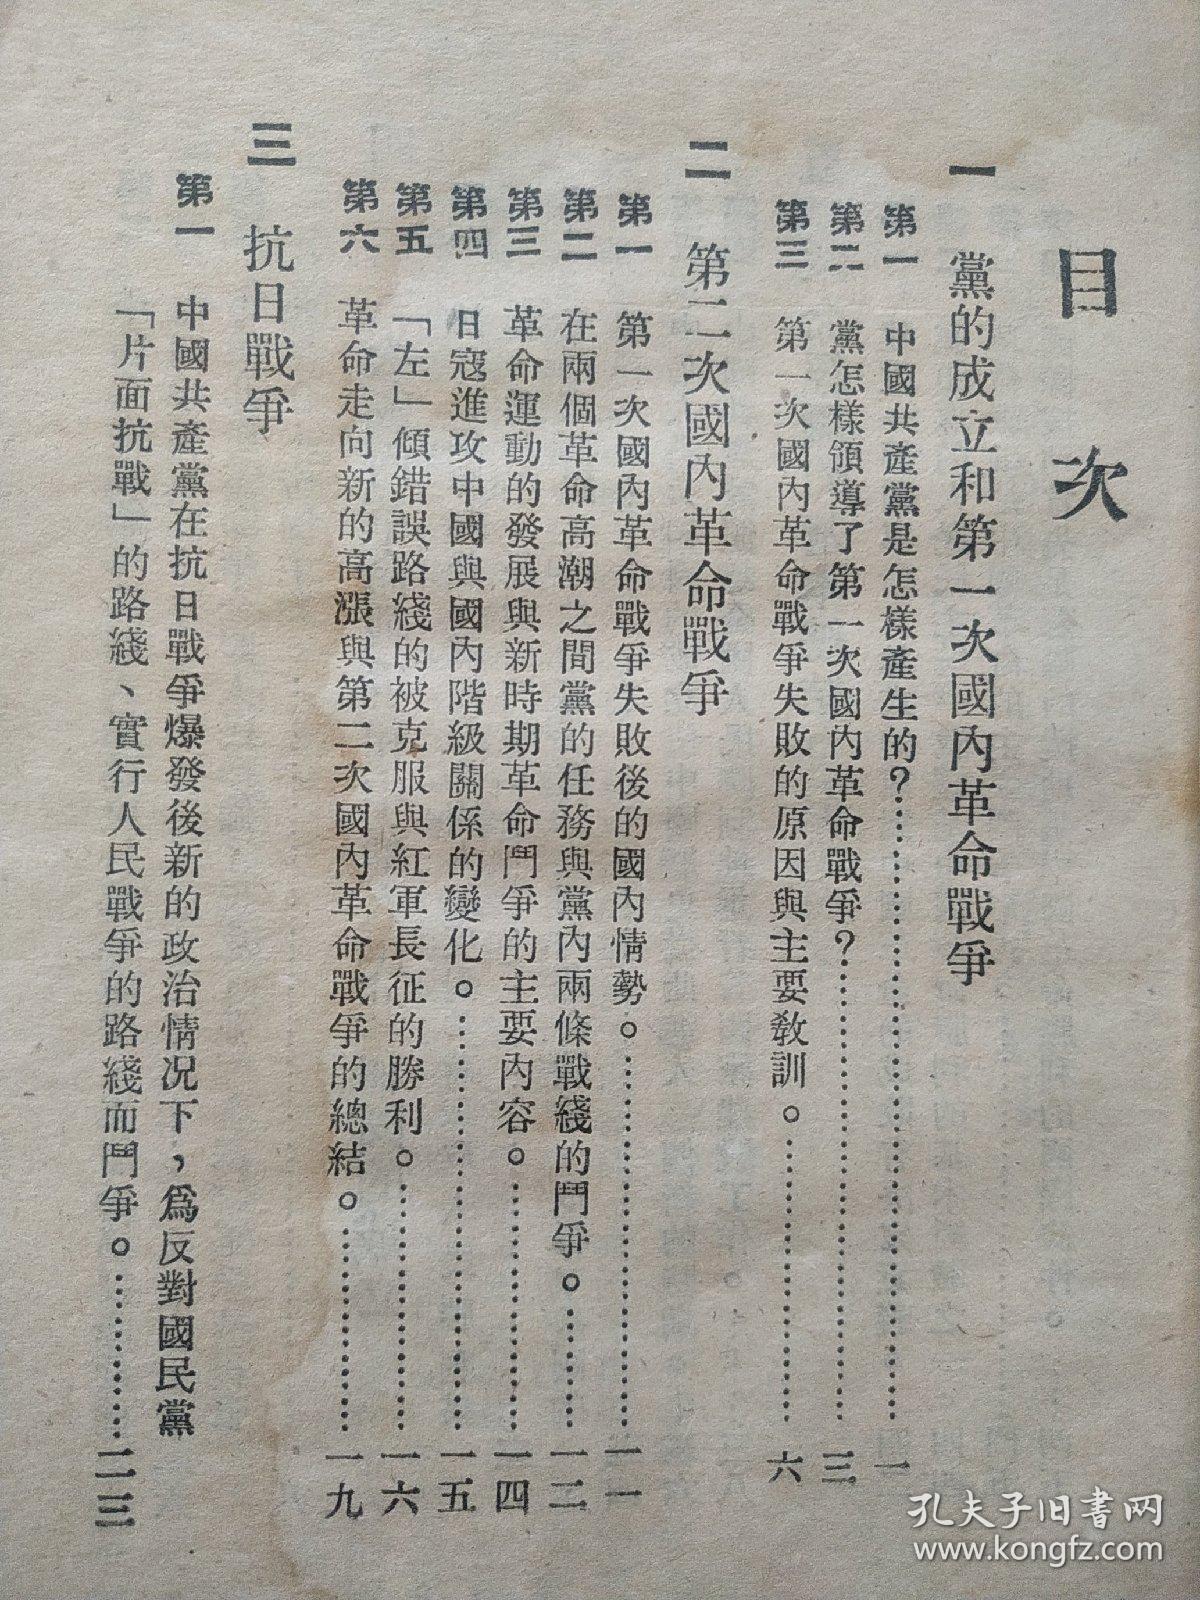 目次
一 黨的成立和第一次國內革命戰爭
第一 中國共產黨是怎樣產生的？……………………一
第二 黨怎樣領導了第一次國內革命戰爭？……………………三
第三 第一次國內革命戰爭失敗的原因與主要教訓。……………………六
二 第二次國內革命戰爭
第一 第一次國內革命戰爭失敗後的國內情勢。……………………一一
第二 在兩個革命高潮之間黨的任務與黨內兩條戰綫的鬥爭。…………一二
第三 革命運動的發展與新時期革命鬥爭的主要內容。………………一四
第四 日寇進攻中國與國內階級關係的變化。……………………一五
第五 「左」傾錯誤路綫的被克服與紅軍長征的勝利。………………一六
第六 革命走向新的高漲與第二次國內革命戰爭的總結。………………一九
三 抗日戰爭
第一 中國共產黨在抗日戰爭爆發後新的政治情况下，爲反對國民黨
「片面抗戰」的路綫、實行人民戰爭的路綫而鬥爭。…………二三
孔夫子旧书网
www.kongfz.com